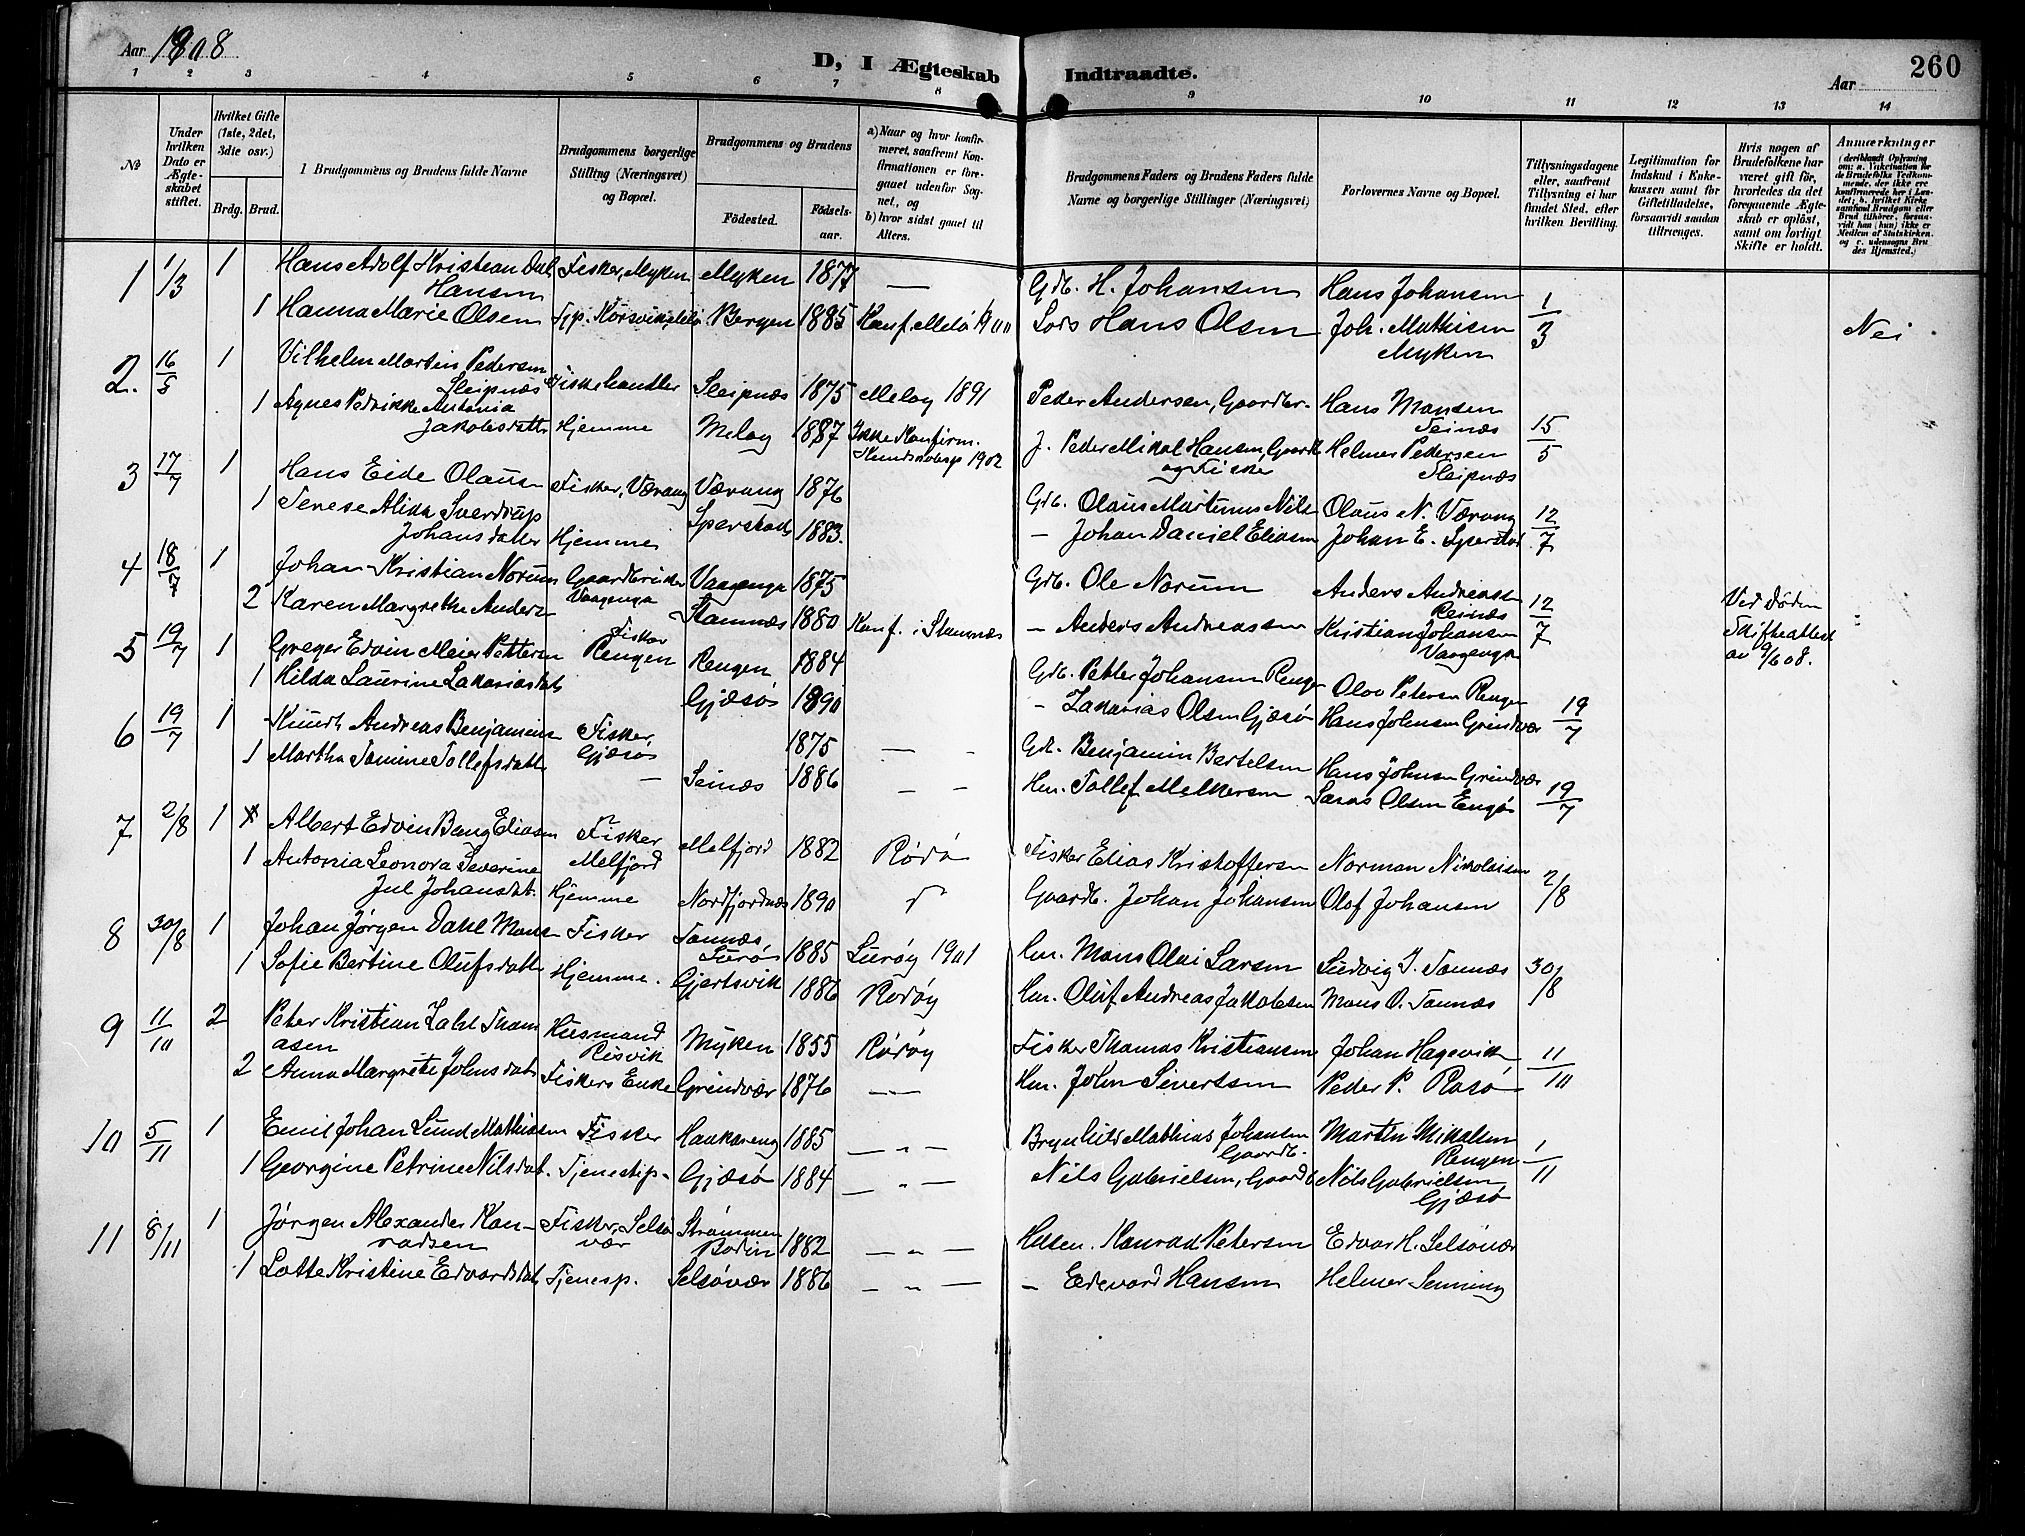 Aar 1908
D, I Ægteskab Indtraadte.
Aar
260
1 2 3 4 5 6 7 8 9 10 11 12 13 14
№
Under hvilken Dato er Ægteskabet stiftet.
Hvilket Gifte (1ste, 2det, 3die osv.)
Brdg. Brud.
1 Brudgommens og Brudens fulde Navne
Brudgommens borgerlige Stilling (Næringsvei) og Bopæl.
Brudgommens og Brudens
Födested. Födselsaar.
a) Naar og hvor konfirmeret, saafremt Konfirmationen er foregaaet udenfor Sognet, og
b) hvor sidst gaaet til Alters.
Brudgommens Faders og Brudens Faders fulde Navne og borgerlige Stillinger (Næringsvei)
Forlovernes Navne og Bopæl.
Tillysningsdagene eller, saafremt Tillysning ei har fundet Sted, efter hvilken Bevilling.
Legitimation for Indskud i Enkekassen samt for Giftetilladelse, forsaavidt saadan tiltrænges.
Hvis nogen af Brudefolkene har været gift før, hvorledes da det foregaaende Ægteskab er oplöst, samt om lovligt Skifte er holdt.
Anmærkninger
(deriblandt Oplysning om: a. Vakcination for de Brudefolks Vedkommende, der ikke ere konfirmerede her i Landet; b. hvilket Kirkesamfund Brudgom eller Brud tilhörer, forsaavidt han (hun) ikke er Medlem af Statskirken, og c. udensogns Brudes Hjemsted.)
1 1/3 1 Hans Adolf Kristean Dal Hansen Fisker, Myken Myken 1877 — Gdb. H. Johansen Hans Johansen 1/3
1 Hanna Marie Olsen Tjp. Korsvik, Bergen 1885 Konf. Melö 1900 Lods Hans Olsen Joh. Mathisen Myken Nei
2. 16/5 1 Vilhelm Martin Pedersen Sleipnæs Fiskehandler Sleipnæs 1875 Meløy 1891 Peder Andersen, Gaardbr. Hans Monsen Teinæs 15/5
1 Agnes Pedrikke Antonia Jakobsdatter Hjemme Meløy 1887 Ikke Konfirm. 1902 J. Peder Mikal Hansen, Gaardb og Fisker Helmer Pedersen Sleipnæs
3 17/7 1 Hans Eide Olausen Fisker, Værang Værang 1876 Gdb. Olaus Martinus Nils Olaus N. Værang 12/7
1 Tenese Alida Sverdrup Johansdatter Hjemme Sperstad 1883. — Johan Daniel Eliasen Johan E. Sperstad
4 18/7 1 Johan Kristian Norum Gaardbruker Vaagenga Vaagenga 1875 Gdb. Ole Norum Anders Andreassen Reinæs 12/7
2 Karen Margrethe Anders Stamnæs 1880 Konf. i Stamnæs — Anders Andreassen Kristian Johansen Vaagenga Ved Døden Skifteattest av 9/6 08.
5 19/7 1 Greger Edvin Meier Pettersen Fisker Rengen Rengen 1884 Gdb. Petter Johansen Rengen Olov Petersen Rengen 19/7
1 Hilda Laurine Zakariasdat Gjæsø 1890 — Zakarias Olsen Gjæsø Hans Johnsen Grindvær
6 19/7 1 Knudt Andreas Benjaminsen Fisker Gjæsø 1875 — - Gdb. Benjamin Bertelsen Hans Johnsen Grindvær 19/7
1 Martha Tomine Tollefsdatter — Seinæs 1886 — — Hm. Tollef Melkersen Saras Olsen Engø
7 2/8 1 Albert Edvin Bang Eliasen Fisker Melfjord Melfjord 1882 Rødø Fisker Elias Kristoffersen Norman Nikolaisen 2/8
1 Antonia Leonora Severine Jul Johansdat. Hjemme Nordfjordnæs 1890 Gaardb. Johan Johansen Olof Johansen
8 30/8 1 Johan Jørgen Dahl Monsen Fisker Tonnæs, Lurø 1885 Lurøy 1901 Hm. Mons Olai Larsen Ludvig J. Tonnæs 30/8
1 Sofie Bertine Olufsdatter Hjemme. Gjertsvik 1886 Rødøy Hm. Oluf Andreas Jakobsen Mons O. Tonnæs
9 11/10 2 Peter Kristian Zahl Thomasen Husmand Risvik Myken 1855 Rødøy Fisker Thomas Kristiansen Johan Hagevik 11/10
2 Anna Margrete Johnsdat. Fiskers Enke Grindvær 1876 — " — Hm. John Sivertsen Peder P. Rosø
10 5/11 1 Emil Johan Lund Mathiasen Fisker Haukareng 1885 — " — Brynhild Mathias Johansen Gaardb. Martin Mikalsen Rengen 1/11
1 Georgine Petrine Nilsdat. Tjenestep. Gjæsø 1884 — " — Nils Gabrielsen, Gaardb Nils Gabrielsen Gjæsø
11 8/11 1 Jørgen Alexander Konradsen Fisker, Selsøvær Strømmen Bodin 1882 — " — Husm. Konrad Petersen Edvar H. Selsøvær
1 Lotte Kristine Edvardsdat. Tjenesp. Selsøvær 1886 — " — — Edevard Hansen Helmer Senning